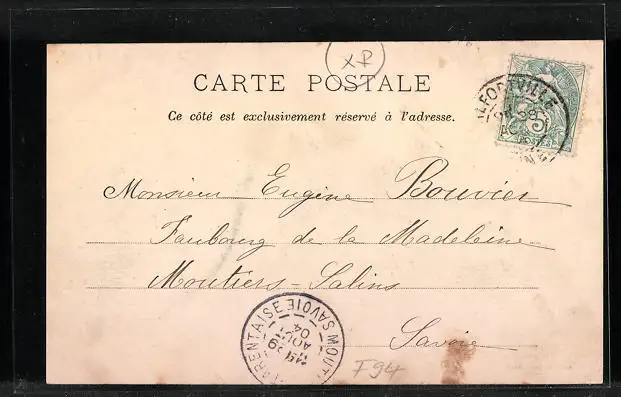 XP
CARTE POSTALE
Ce côté est exclusivement réservé à l'adresse.
ALFORTVILLE
5
POSTES
Monsieur Eugène Bouvier
Faubourg de la Madeleine
Moutiers-Salins
Savoie
MOUTIERS TARENTAISE SAVOIE
AOUT
04
F94